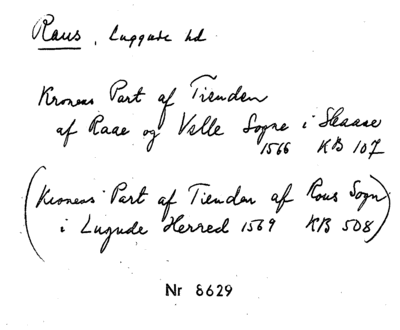 Raus, Luggude hd
Kronens Part af Tienden
af Raae og Valle Sogne i Skaane
1566 KB 107
(Kronens Part af Tienden af Rous Sogn
i Lugude Herred 1569 KB 508)
Nr 8629